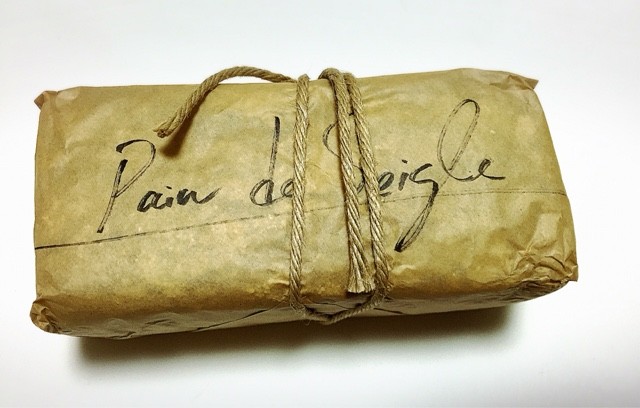 Pain de Seigle